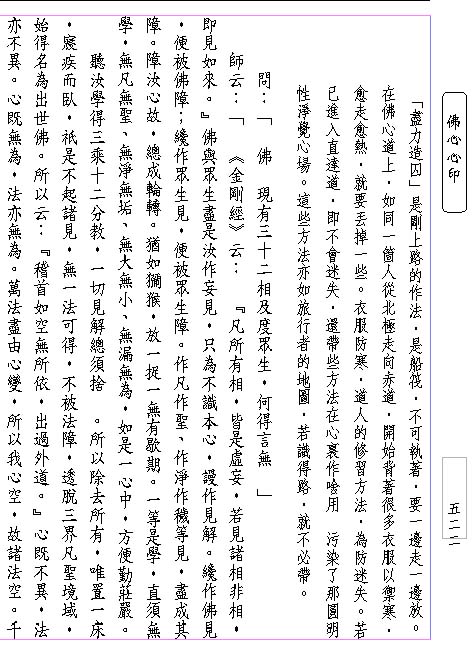 佛心心印
五二二
「盡力造囚」是剛上路的作法，是船筏，不可執著，要一邊走一邊放。
在佛心道上，如同一箇人從北極走向赤道，開始背著很多衣服以禦寒，
愈走愈熱，就要丟掉一些。衣服防寒，道人的修習方法，為防迷失。若
已進入直達道，即不會迷失，還帶些方法在心裏作啥用　污染了那圓明
性淨覺心場。這些方法亦如旅行者的地圖，若識得路，就不必帶。
問：「　佛　現有三十二相及度眾生，何得言無　」
師云：「　《金剛經》云：　『凡所有相，皆是虛妄，若見諸相非相，
即見如來。』佛與眾生盡是汝作妄見，只為不識本心，謾作見解。纔作佛見
，便被佛障；纔作眾生見，便被眾生障。作凡作聖、作淨作穢等見，盡成其
障。障汝心故，總成輪轉。猶如獼猴，放一捉一無有歇期。一等是學，直須無
學，無凡無聖、無淨無垢、無大無小、無漏無為，如是一心中，方便勤莊嚴。
聽汝學得三乘十二分教，一切見解總須捨　。所以除去所有，唯置一床
，寢疾而臥，祇是不起諸見，無一法可得，不被法障　透脫三界凡聖境域，
始得名為出世佛。所以云：『稽首如空無所依，出過外道。』心既不異，法
亦不異。心既無為，法亦無為。萬法盡由心變，所以我心空，故諸法空。千